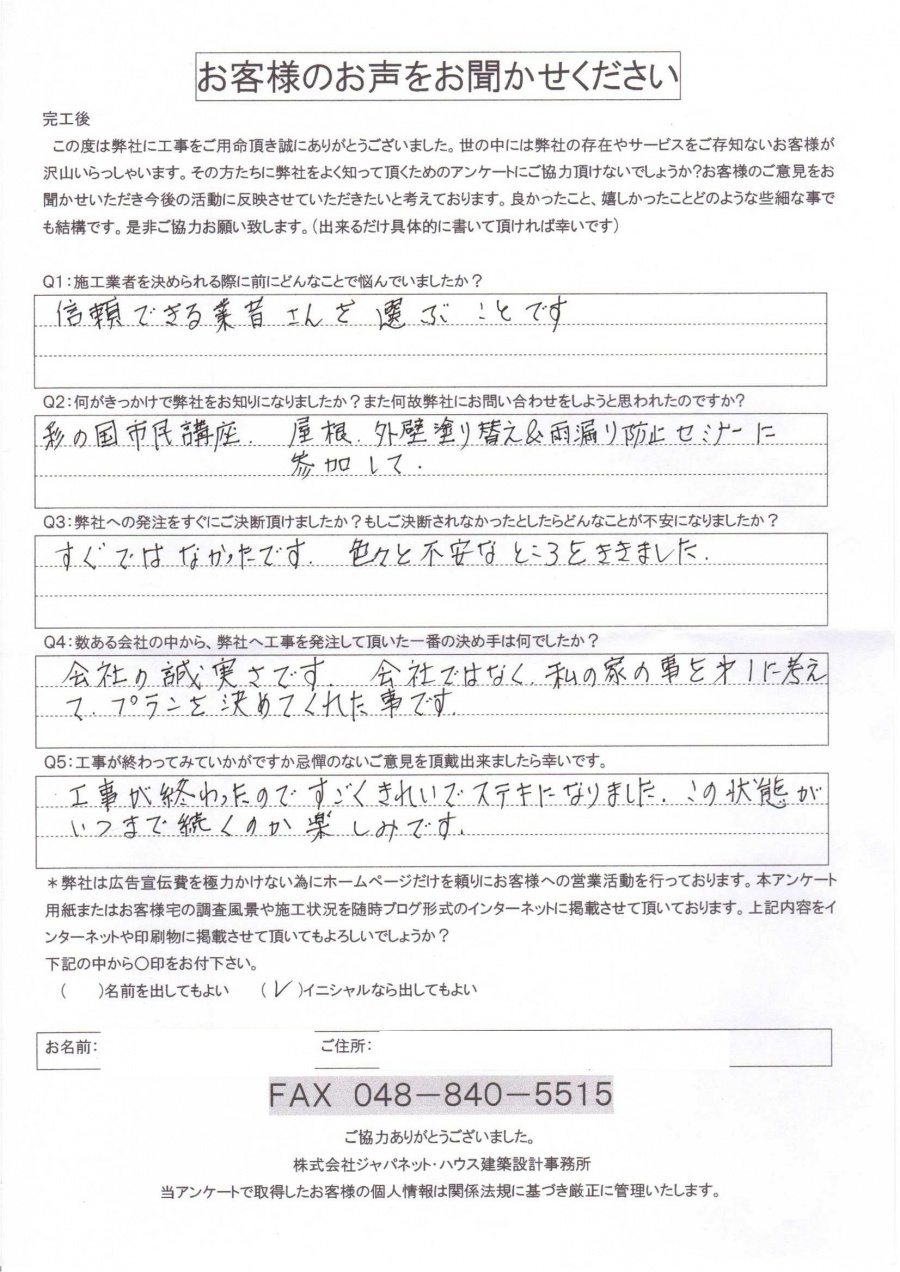 お客様のお声をお聞かせください
完工後
この度は弊社に工事をご用命頂き誠にありがとうございました。世の中には弊社の存在やサービスをご存知ないお客様が
沢山いらっしゃいます。その方たちに弊社をよく知って頂くためのアンケートにご協力頂けないでしょうか?お客様のご意見をお
聞かせいただき今後の活動に反映させていただきたいと考えております。良かったこと、嬉しかったことどのような些細な事で
も結構です。是非ご協力お願い致します。(出来るだけ具体的に書いて頂ければ幸いです)
Q1:施工業者を決められる際に前にどんなことで悩んでいましたか?
信頼できる業者さんを選ぶことです
Q2:何がきっかけで弊社をお知りになりましたか?また何故弊社にお問い合わせをしようと思われたのですか?
彩の国市民講座. 屋根.外壁塗り替え&雨漏り防止セミナーに
参加して.
Q3:弊社への発注をすぐにご決断頂けましたか?もしご決断されなかったとしたらどんなことが不安になりましたか?
すぐではなかったです. 色々と不安なところをききました.
Q4:数ある会社の中から、弊社へ工事を発注して頂いた一番の決め手は何でしたか?
会社の誠実さです. 会社ではなく.私の家の事を才1に考え
て.プランを決めてくれた事です.
Q5:工事が終わってみていかがですか忌憚のないご意見を頂戴出来ましたら幸いです。
工事が終わったのですごくきれいでステキになりました.この状態が
いつまで続くのか楽しみです.
*弊社は広告宣伝費を極力かけない為にホームページだけを頼りにお客様への営業活動を行っております。本アンケート
用紙またはお客様宅の調査風景や施工状況を随時ブログ形式のインターネットに掲載させて頂いております。上記内容をイ
ンターネットや印刷物に掲載させて頂いてもよろしいでしょうか?
下記の中から○印をお付下さい。
( )名前を出してもよい (✓)イニシャルなら出してもよい
お名前: ご住所:
FAX 048-840-5515
ご協力ありがとうございました。
株式会社ジャパネット・ハウス建築設計事務所
当アンケートで取得したお客様の個人情報は関係法規に基づき厳正に管理いたします。